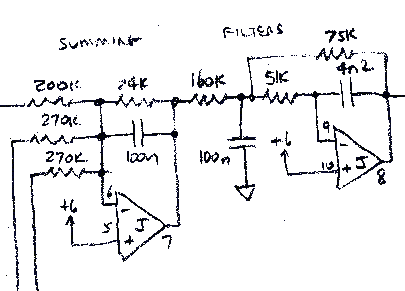 SUMMING FILTERS
75K
200K 24K 160K 51K 4n2
270K
100n
270K 100n
+6 9
-
10 +
8
6
+6 -
5 +
7
J
J